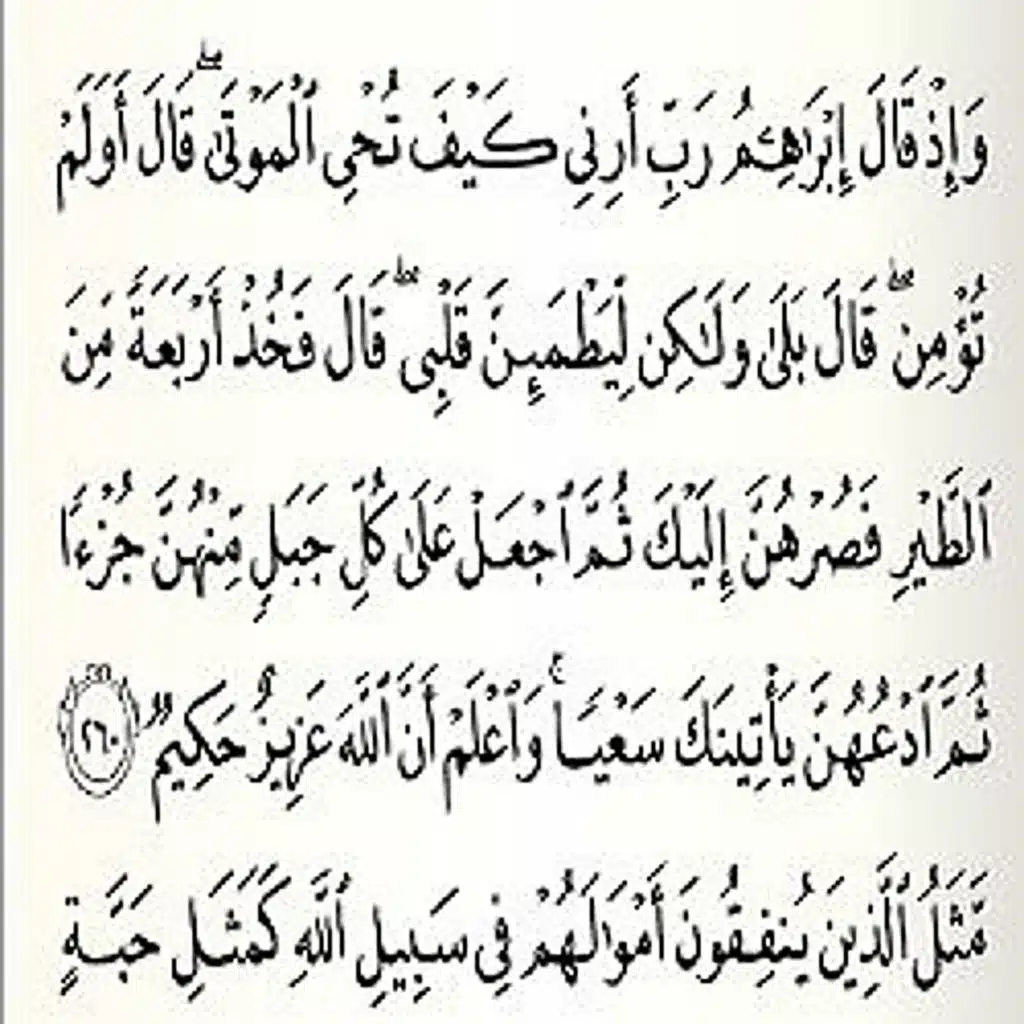 وَإِذْ قَالَ إِبْرَٰهِـۧمُ رَبِّ أَرِنِي كَيْفَ تُحْيِ ٱلْمَوْتَىٰ ۖ قَالَ أَوَلَمْ
تُؤْمِن ۖ قَالَ بَلَىٰ وَلَـٰكِن لِّيَطْمَئِنَّ قَلْبِى ۖ قَالَ فَخُذْ أَرْبَعَةً مِّنَ
ٱلطَّيْرِ فَصُرْهُنَّ إِلَيْكَ ثُمَّ ٱجْعَلْ عَلَىٰ كُلِّ جَبَلٍ مِّنْهُنَّ جُزْءًا
ثُمَّ ٱدْعُهُنَّ يَأْتِينَكَ سَعْيًا ۚ وَٱعْلَمْ أَنَّ ٱللَّهَ عَزِيزٌ حَكِيمٌ ٢٦٠
مَّثَلُ ٱلَّذِينَ يُنفِقُونَ أَمْوَٰلَهُمْ فِى سَبِيلِ ٱللَّهِ كَمَثَلِ حَبَّةٍ